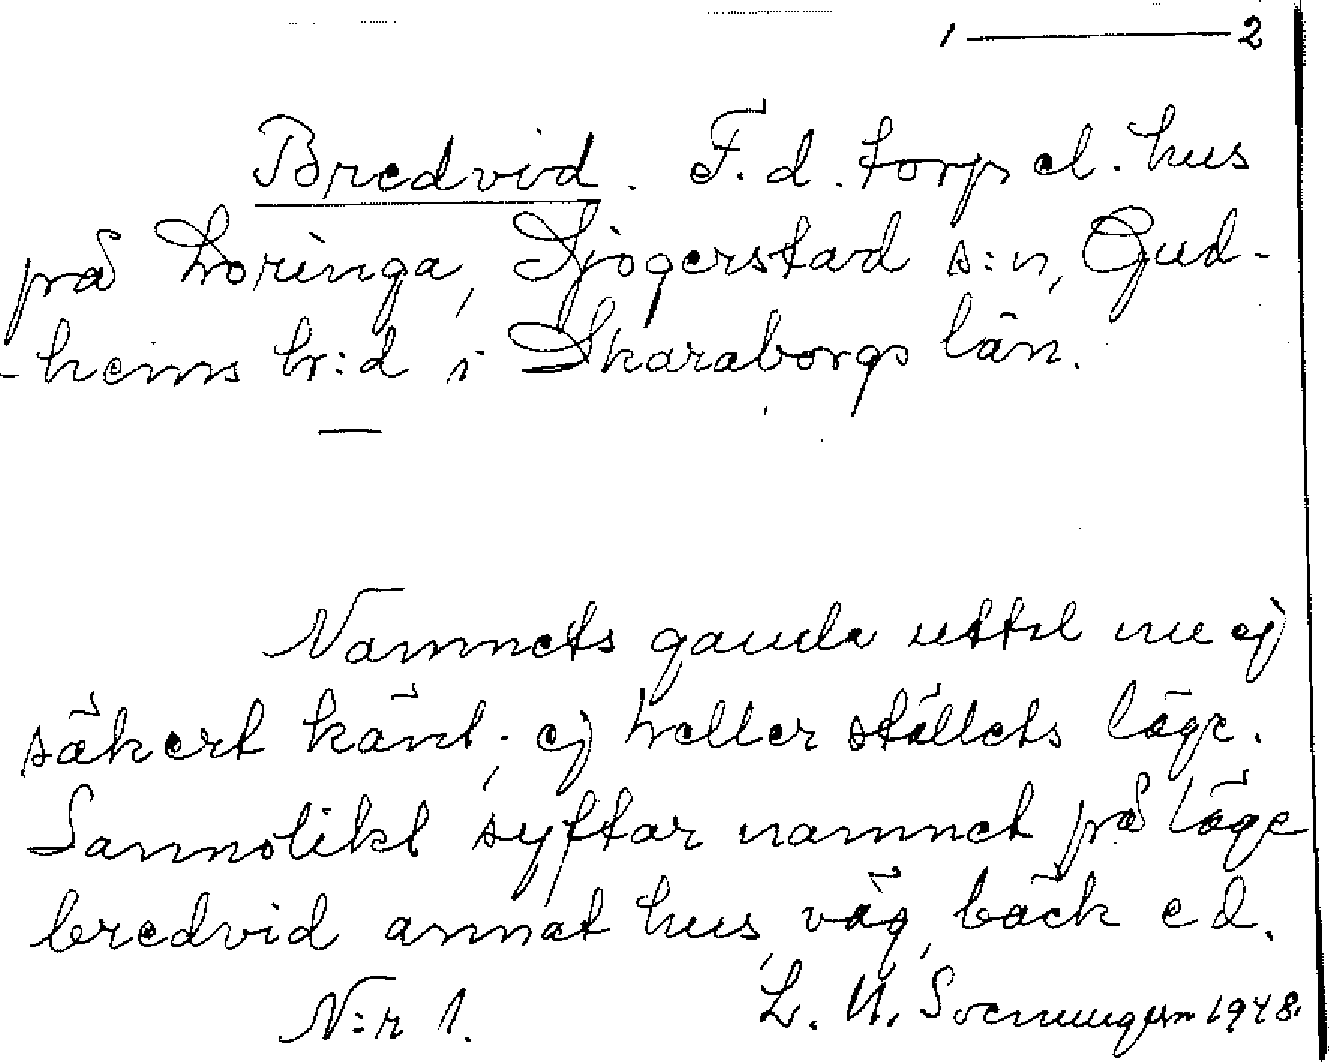 1 — 2
Bredvid. F. d. torp el. hus
på Loringa, Sjögerstad s:n, Gud-
-hems hr:d i Skaraborgs län.
—
Namnets gamla uttal nu ej
säkert känt; ej heller ställets läge.
Sannolikt syftar namnet på läge
bredvid annat hus, väg, bäck e d.
N:r 1. L. M. Svenungsson 1948.